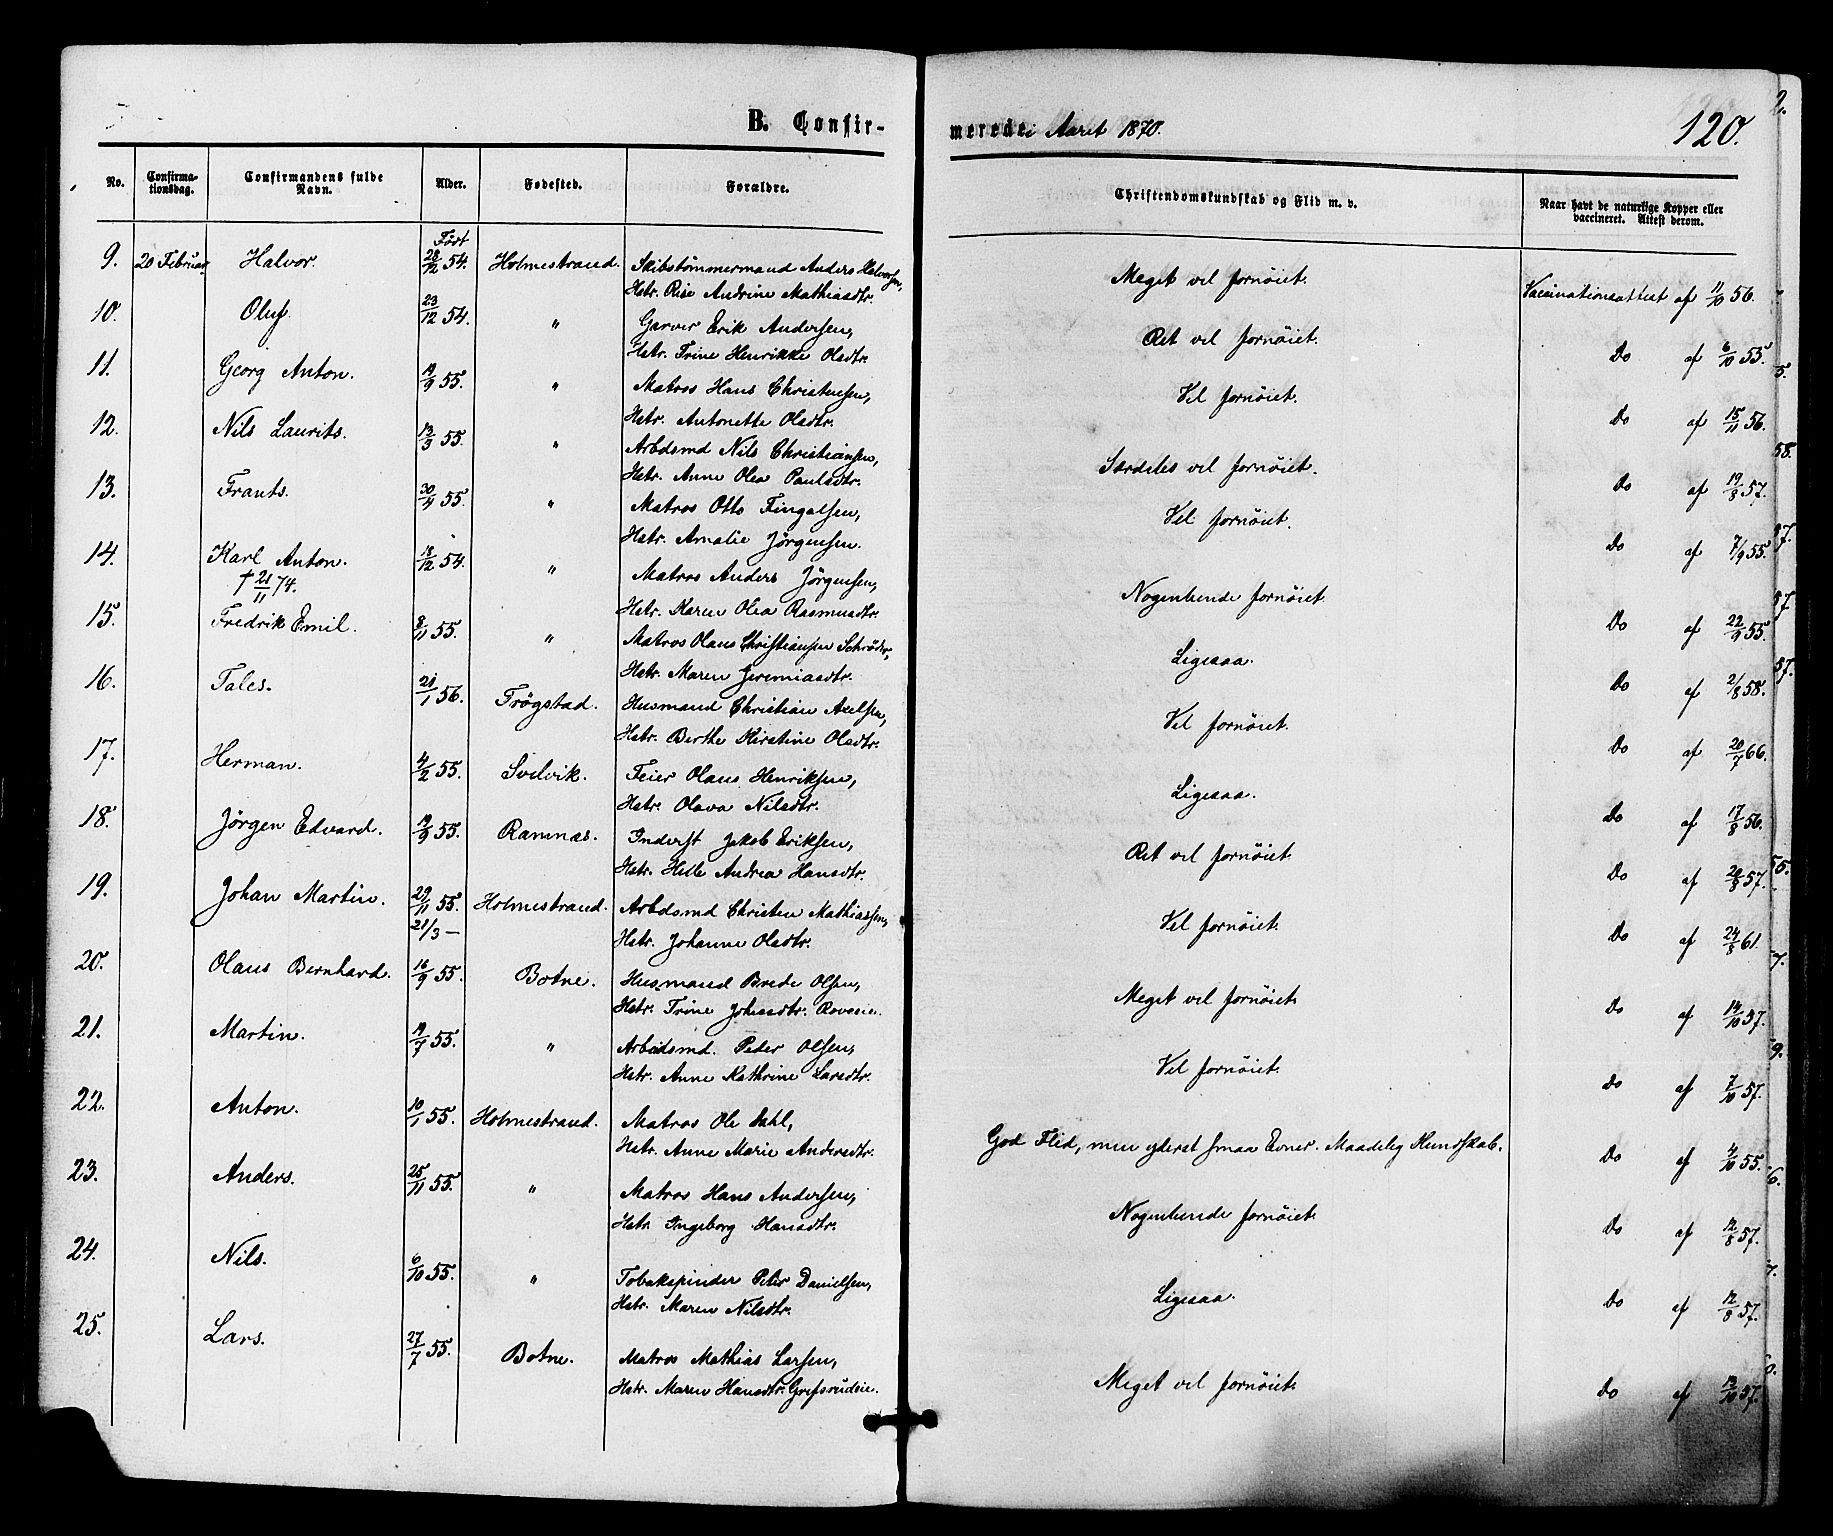 B. Confir-merede i Aaret 1870. 120.
No. Confirma-tionsdag. Confirmandens fulde Navn. Alder. Fødested. Forældre. Christendomskundskab og Flid m. v. Naar havt de naturlige Kopper eller vaccineret. Attest derom.
9. 20 Februar Halvor. Født 28/12 54. Holmestrand. Skibstømmermand Anders Halvorsen,
Hstr. Rise Andrine Mathiasdtr. Meget vel fornøiet. Vaccinationsattest af 11/10 56.
10. Oluf. 23/12 54. " Garver Erik Andersen,
Hstr. Trine Henrikke Olsdtr. Ret vel fornøiet. Do af 6/10 55.
11. Georg Anton. 19/9 55. " Matros Hans Christensen,
Hstr. Antonette Olsdtr. Vel fornøiet. Do af 15/11 56.
12. Nils Laurits. 13/3 55. " Arbdsmd Nils Christiansen,
Hstr. Anne Olea Paulsdtr. Særdeles vel fornøiet. Do af 19/8 57.
13. Frants. 30/4 55. " Matros Otto Fingalsen,
Hstr. Amalie Jørgensen. Vel fornøiet. Do af 7/9 55.
14. Karl Anton. 18/12 54. " Matros Anders Jørgensen,
† 21/11 74. Hstr. Karen Olea Rasmusdtr. Nogenlunde fornøiet. Do af 22/9 55.
15. Fredrik Emil. 8/11 55. " Matros Olaus Christiansen Schrøder,
Hstr. Maren Jeremiasdtr. Ligesaa. Do af 2/8 58.
16. Tales. 21/1 56. Trøgstad. Husmand Christian Axelsen,
Hstr. Berthe Kirstine Olsdtr. Vel fornøiet. Do af 20/7 66.
17. Herman. 4/2 55. Svelvik. Feier Olaus Henriksen,
Hstr. Olava Nilsdtr. Ligesaa. Do af 17/8 56.
18. Jørgen Edvard. 19/9 55. Ramnæs. Inderst Jakob Eriksen,
Hstr. Helle Andrea Hansdtr. Ret vel fornøiet. Do af 20/8 57.
19. Johan Martin. 29/11 55. Holmestrand. Arbdsmd Christen Mathiassen,
21/3 — Hstr. Johanne Olsdtr. Vel fornøiet. Do af 24/8 61.
20. Olaus Bernhard. 16/9 55. Botne. Husmand Brede Olsen,
Hstr. Trine Johnsdtr. Roveeie. Meget vel fornøiet. Do af 14/10 57.
21. Martin. 19/7 55. " Arbeidsmd. Peder Olsen,
Hstr. Anne Kathrine Larsdtr. Vel fornøiet. Do af 7/10 57.
22. Anton. 10/1 55. Holmestrand. Matros Ole Dahl,
Hstr. Anne Marie Andersdtr. God Flid, men yderst smaa Evner. Maadelig Kundskab. Do af 4/10 55.
23. Anders. 25/11 55. " Matros Hans Andersen,
Hstr. Ingeborg Hansdtr. Nogenlunde fornøiet. Do af 12/8 57.
24. Nils. 6/10 55. " Tobakspinder Peter Danielsen,
Hstr. Maren Nilsdtr. Ligesaa. Do af 12/8 57.
25. Lars. 27/7 55. Botne. Matros Mathias Larsen,
Hstr. Maren Hansdtr. Grefsrudeie. Meget vel fornøiet. Do af 13/10 57.